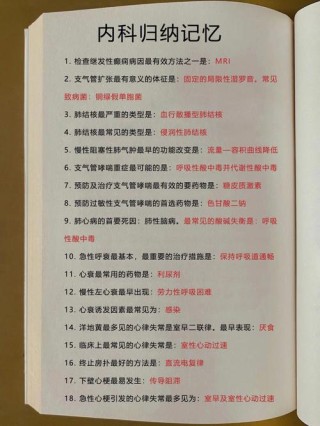 内科归纳记忆
1. 检查继发性癫痫病因最有效方法之一是：MRI
2. 支气管扩张最有意义的体征是：固定的局限性湿罗音。常见
致病菌：铜绿假单胞菌
3. 肺结核最严重的类型是：血行散播型肺结核
4. 肺结核最常见的类型是：侵润性肺结核
5. 慢性阻塞性肺气肿最早的功能改变是：流量—容积曲线降低
6. 支气管哮喘重症最可能的是：呼吸性酸中毒并代谢性酸中毒
7. 预防及治疗支气管哮喘最有效的要药物是：糖皮质激素
8. 预防过敏性支气管哮喘首选药是：色甘酸二钠
9. 肺心病的首要死因：肺性脑病。最常见的酸碱失衡是：呼吸
性酸中毒
10. 急性呼衰最基本，最重要的治疗措施是：保持呼吸道通畅
11. 心衰最常用的药物是：利尿剂
12. 慢性左心衰最早出现：劳力性呼吸困难
13. 心衰诱发因素最常见为：感染
14. 洋地黄最多见的心律失常是室早二联律。最早表现：厌食
15. 临床上最常见的心律失常是：室性心动过速
16. 终止房扑最好的方法是：直流电复律
17. 下壁心梗最易发生：传导阻滞
18. 急性心梗引发的心律失常最多见为：室早及室性心动过速